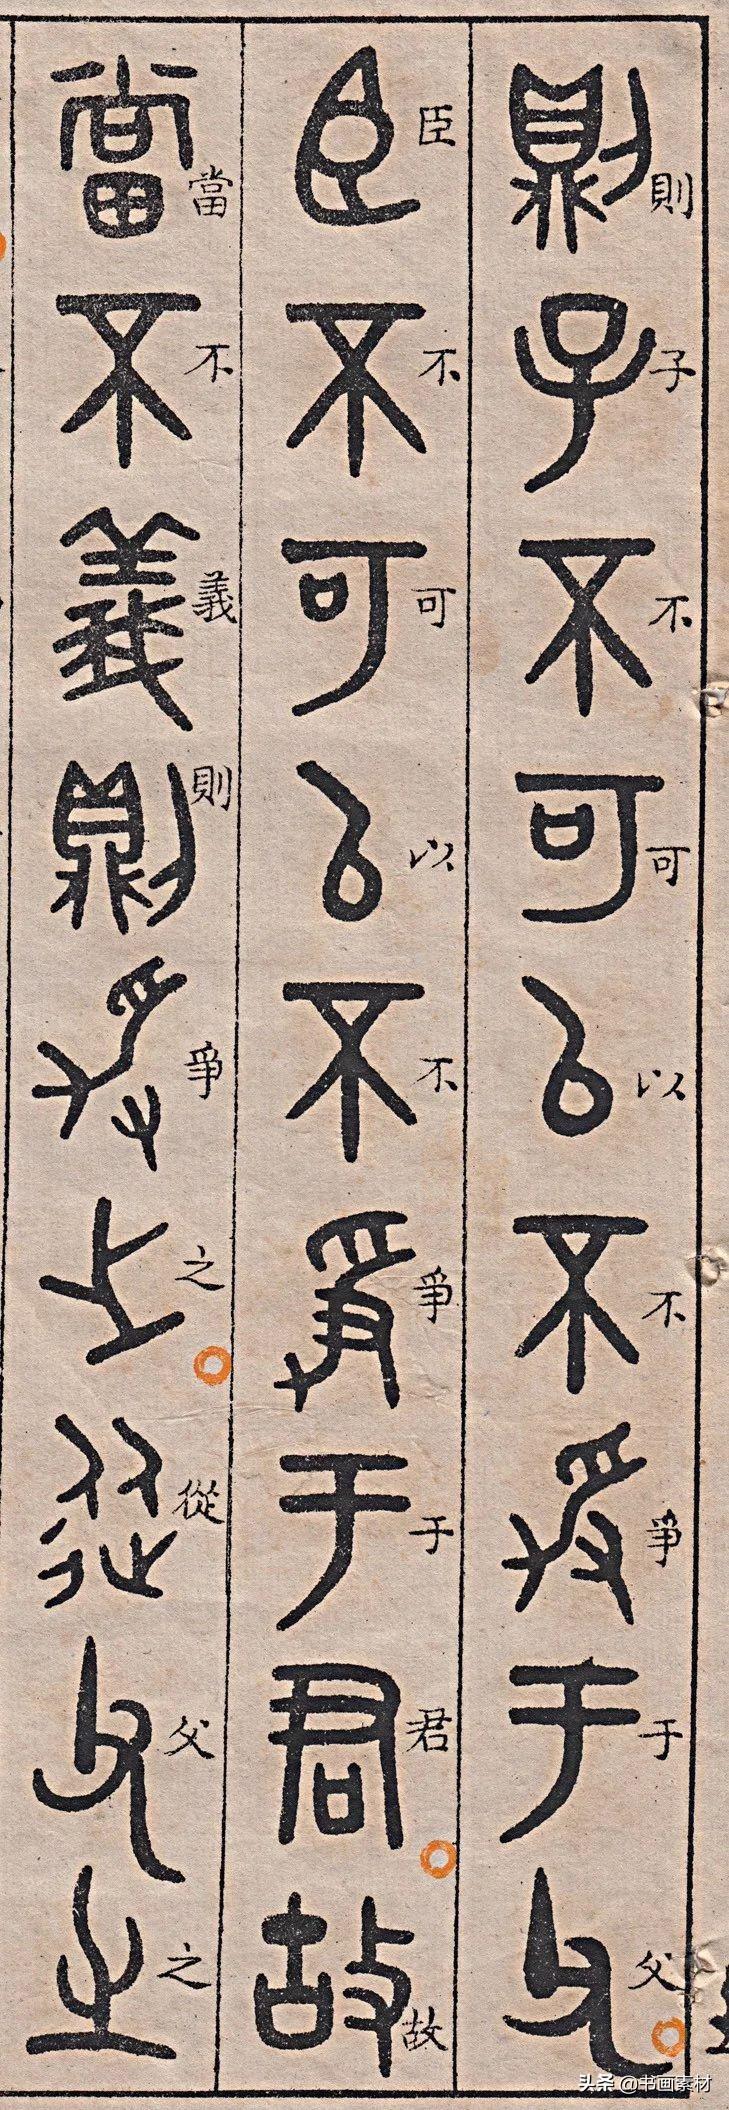 則子不可以不爭于父
臣不可以不爭于君故
當不義則爭之從父之
头条 @书画素材